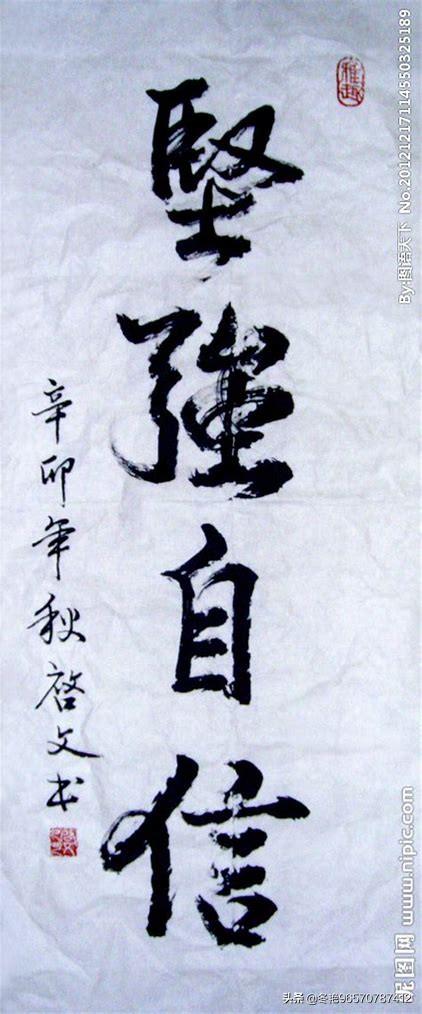 雅趣
堅強自信
辛卯年秋啓文书
By:图语天下 No.20121217114550325189
昵图网 www.nipic.com
头条 @冬艳96570787412